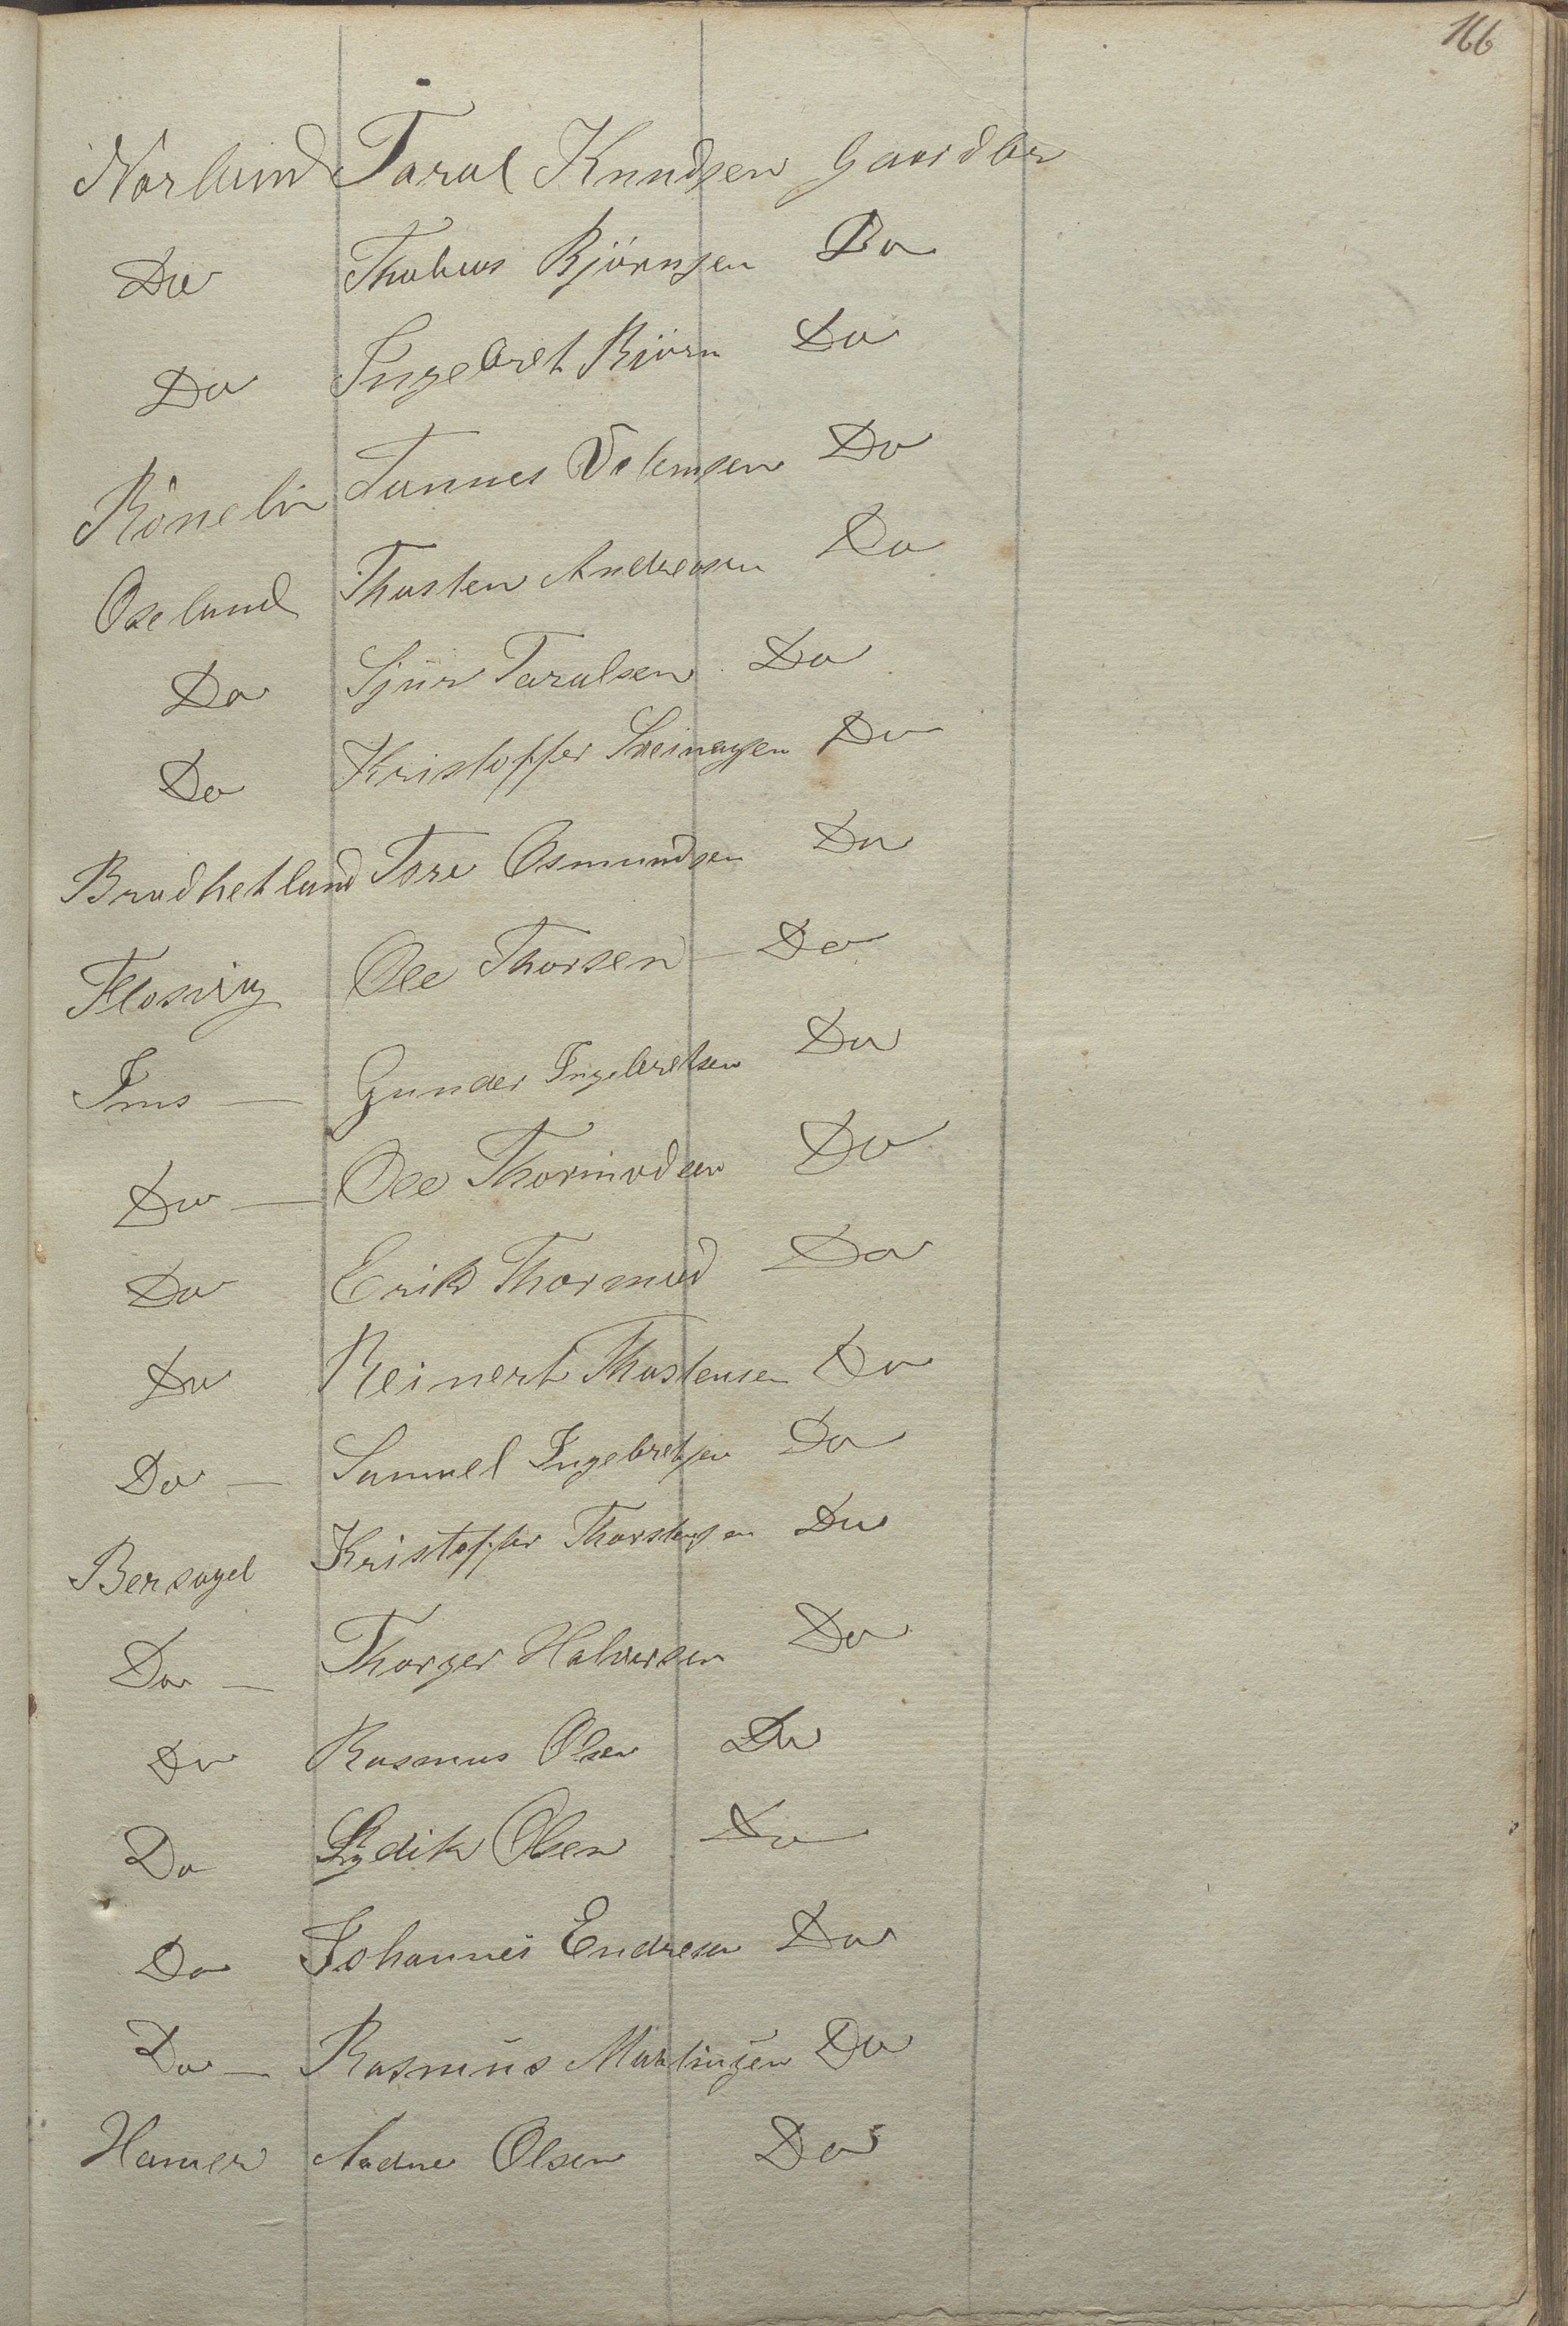 166
Norland Taral Knudsen Gaardbr
Do Thobias Björnsen Do
Do Ingebret Björn Do
Rönelin Tannes Do
Oseland Thosten Andreasen Do
Do Sjur Taralsen Do
Do Kristoffer Sveinagsen Do
Bradhetland Tore Osmundsen Do
Flosvig Ole Thorsen Do
Ims — Gunder Ingebretsen Do
Do — Ole Thormodsen Do
Do Erik Thormod Do
Do Reinert Thostensen Do
Do — Samuel Ingebretsen Do
Bersagel Kristoffer Thorstensen Do
Do — Thorger Halversen Do
Do Rasmus Olsen Do
Do Lydik Olsen Do
Do Johannes Endresen Do
Do — Rasmus Martinsen Do
Hamer Aadne Olsen Do